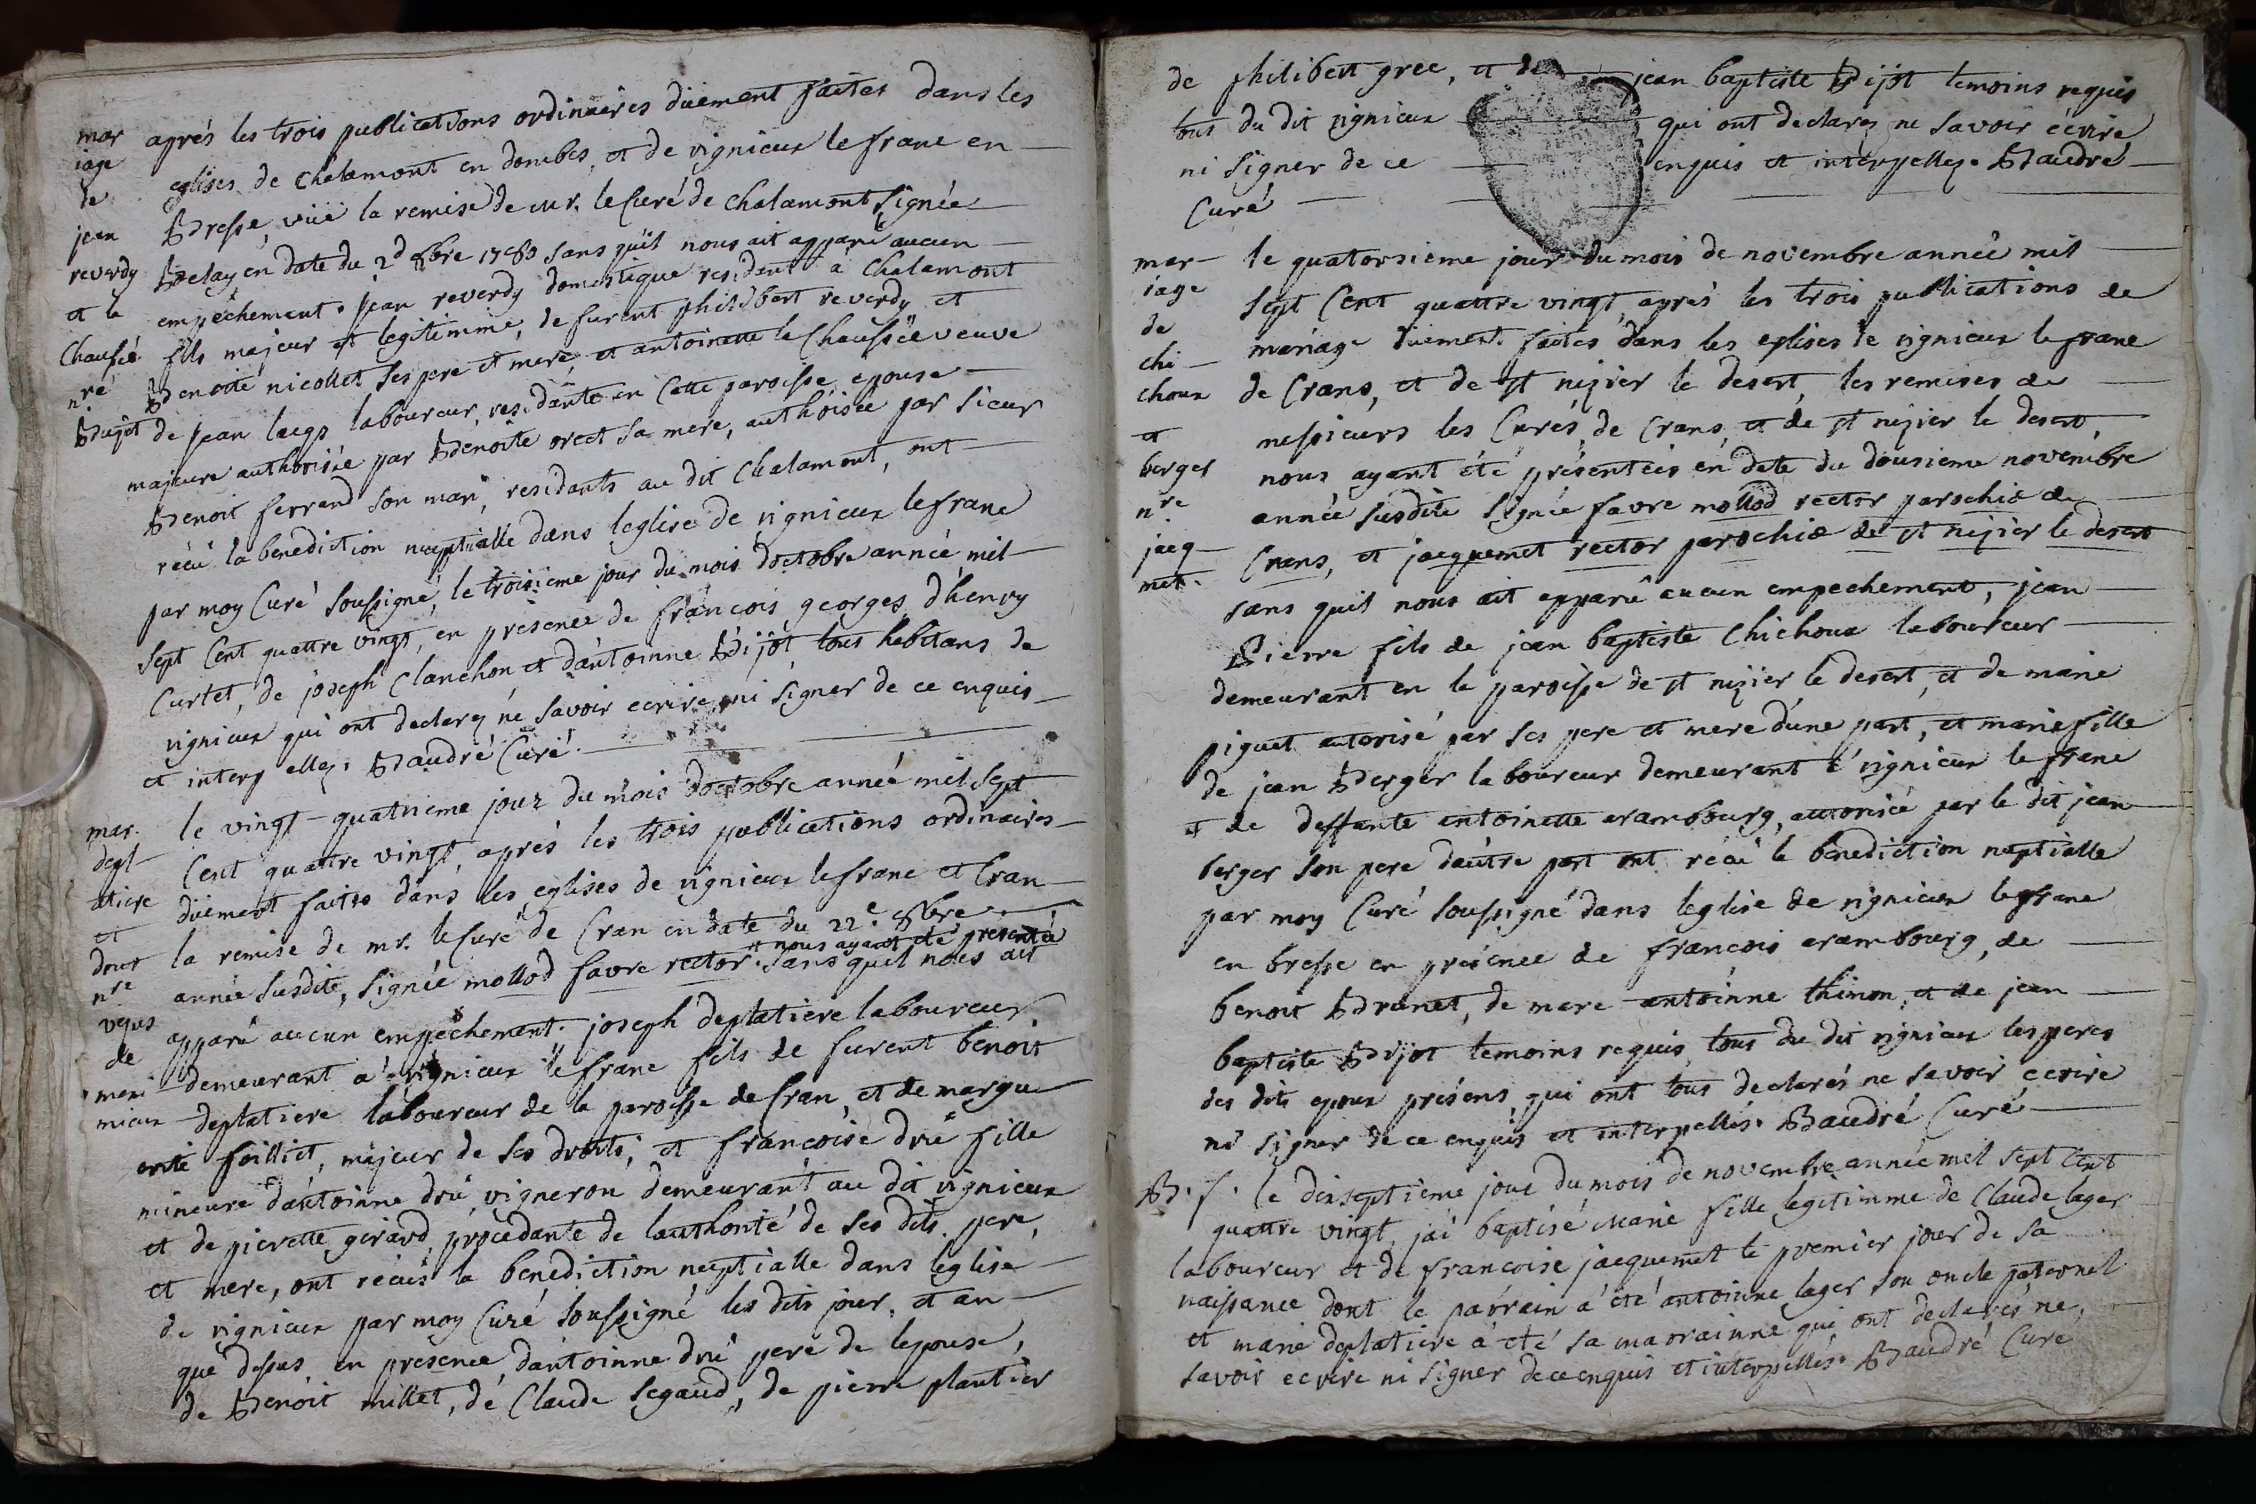 mar
iage
de
jean
reverdy
et la
Chaussée
nre
Bujet
aprés les trois publications ordinaires düement faites dans les
eglises de chalamont en dombes, et de vignieux le franc en
Bresse, vüë la remise de mr. le Curé de Chalamont signée
Belay, en date du 2d 8bre 1780 sans qu'il nous ait apparû aucun
empêchement. jean reverdy domestique residant à Chalamont
fils majeur et legitimme, de furent philibert reverdy et
Benoite nicollet ses pere et mere, et antoinette la Chaussée veuve
de jean laugs laboureur, residante en Cette paroisse epouse
majeure authorisée par Benoîte orect sa mere, authoisée par sieur
Benoit ferrand son mari, residants au dit Chalamont, ont
récû la benediction nuptialle dans leglise de vignieux lefranc
par moy Curé soussigné, le troisieme jour du mois doctobre année mil
sept Cent quattre vingt, en présence de francois georges, d'henry
Curtet, de joseph Clanchon et dantoinne Bijot, tous habitans de
vignieux qui ont declarez né savoir ecrire, ni signer de ce enquis
et interpellez. Baudré Curé.
mar.
depl
atiere
et
drut
nre
veüs
de
meri
mieux
le vingt-quatrieme jour du mois doctobre année mil sept
Cent quattre vingt, aprés les trois publications ordinaires
düement faites dans les eglises de vignieux lefranc et Cran
la remise de mr. le Curé de Cran en date du 22e. 8bre
année susdite, signée mollod favre rector. nous ayant été presentée sans quil nous ait
apparû aucun empêchement. joseph deplatiere laboureur
demeurant a vignieux le franc fils de furent benoit
deplatiere laboureur de la paroisse de Cran, et de margue
orité foilliet, majeur de ses droits, et francoise drû fille
mineure dantoinne drû vigneron demeurant au dit vignieux
et de pierette girard, procedante de lauthorité de ses dits pere,
et mere, ont récûs la benediction nuptialle dans leglise
de vignieux par moy Curé soussigné les dits jour, et an
que dessus en présence dantoinne drû pere de lepouse,
de Benoit millet, dé Claude segaud, de pierre plantier
de philibert gree, et de jean baptiste Bijot temoins requis
tous du dit vignieux qui ont declarez ne savoir écrire
ni signer de ce enquis et interpellez. Baudré
Curé
mar
iage
de
chi
choux
et
berger
nre
jacq
met.
le quatorsieme jour du mois de novembre année mil
sept Cent quattre vingt, aprés les trois publications de
mariage düement faites dans les eglises de vignieux le franc
de Crans, et de st nizier le desert, les remises de
messieurs les Curés, de Crans, et de st nizier le desert,
nous ayant été présentées en date du dousieme novembre
année susdite signée favre mollod rector parochiæ de
Crans, et jacquemet rector parochiæ de st nizier le desert
sans quil nous ait apparû aucun empechement, jean
Pierre fils de jean baptiste Chichoux laboureur
demeurant en la paroisse de st nizier le desert, et de marie
piguet autorisé par ses pere et mere dune part, et marie fille
de jean Berger laboureur demeurant a vignieux le franc
et de deffunte antoinette arambourg, autorisée par le dit jean
berger son pere dautre part ont récû la benediction nuptialle
par moy Curé soussigné dans leglise de vignieux le franc
en bresse en présence de francois arambourg, de
benoit Brunet, de marc antoinne thinon, et de jean
baptiste Bijot temoins requis, tous du dit vignieux les peres
des dits epoux présens, qui ont tous declarés ne savoir ecrire
ni signer de ce enquis et interpellés. Baudré Curé
B. f. le dixseptieme jour du mois de novembre année mil sept Cent
quattre vingt, jai baptisé Marie fille legitimme de Claude lager
laboureur et de francoise jacquemet le premier jour de sa
naissance dont le parrain a été antoinne lager son oncle paternel
et marie deplatiere a été sa marrainne qui ont declarés ne,
savoir ecrire ni signer de ce enquis et interpellés. Baudré Curé